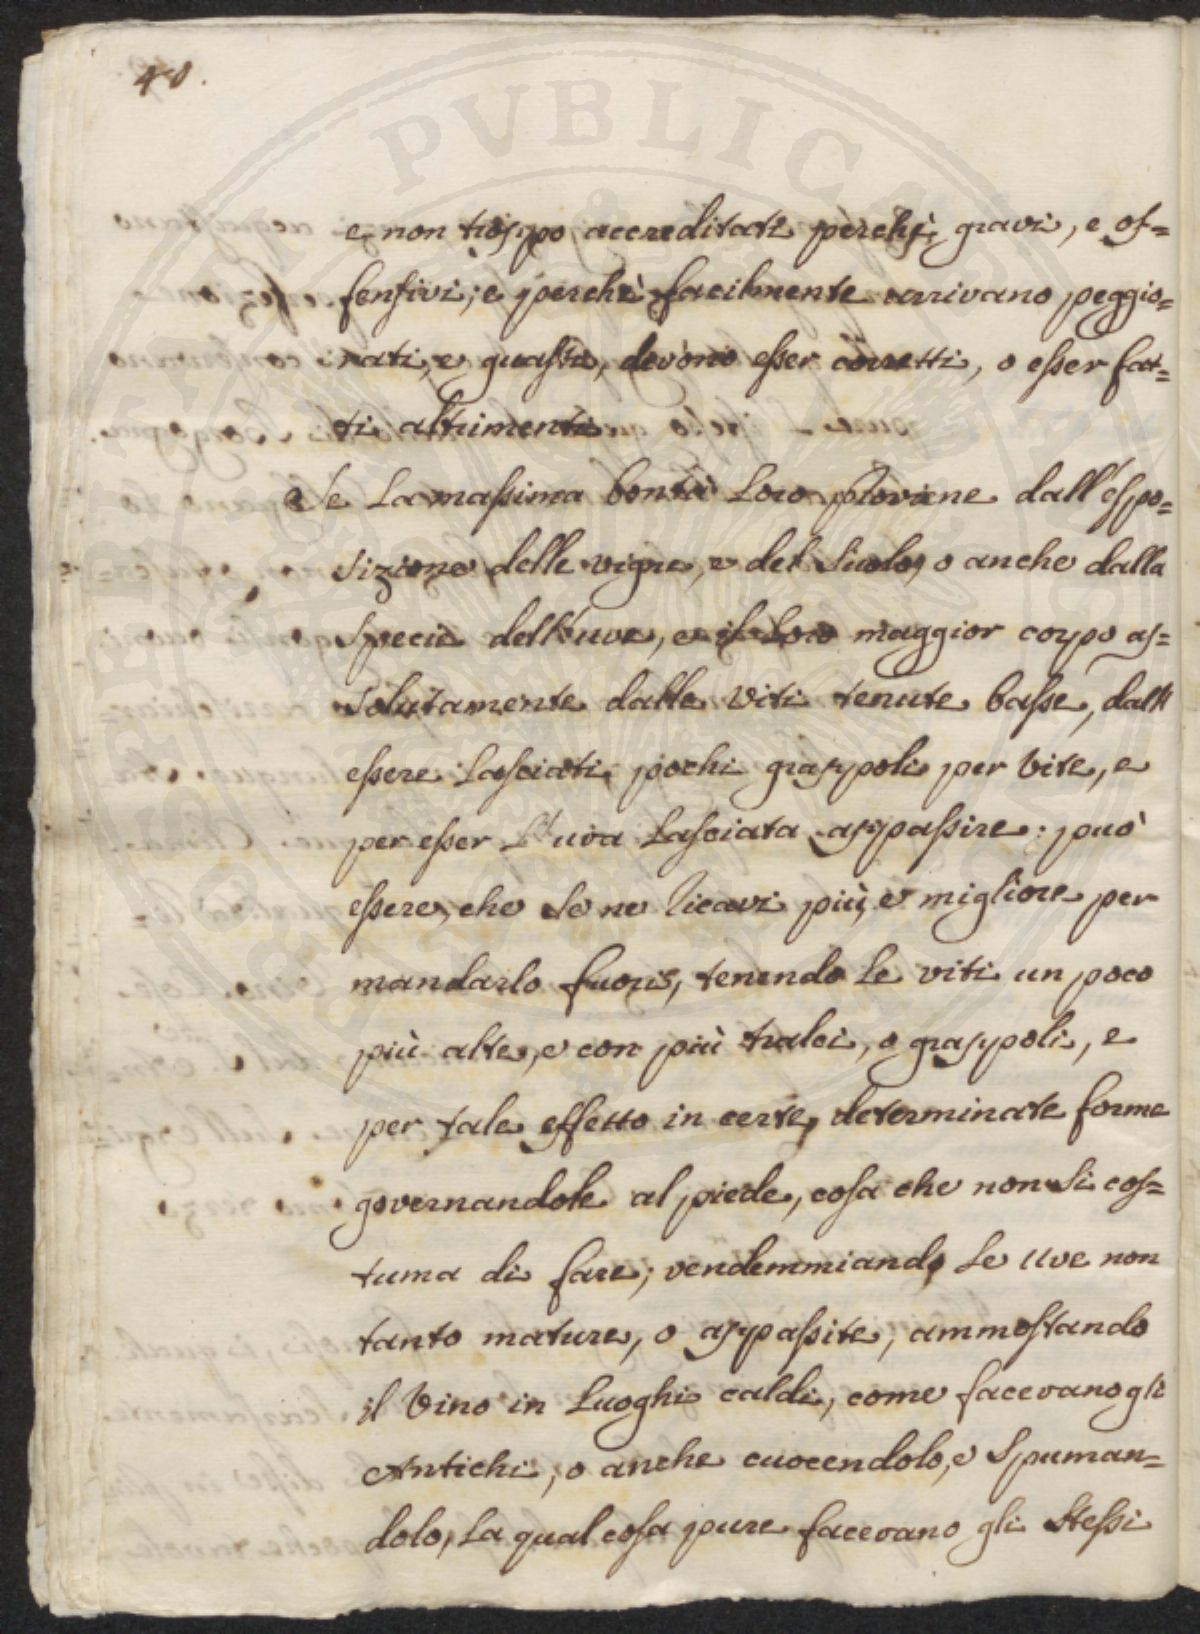 40.
e non troppo accreditati perche gravi, e of=
fensivi; e perchè facilmente arrivano peggio=
rati, e guasti, devono esser corretti, o esser fat=
ti altrimenti
Se La massima bontà Loro proviene dall'espo=
sizione delle vigne, e del Suolo, o anche dalla
Specie dell'uve, e il Loro maggior corpo as=
solutamente dalle Viti tenute basse, dall'
essere Lasciati pochi grappoli per Vite, e
per esser L'uva Lasciata appassire: può
essere, che Se ne Ricavi più, e migliore per
mandarlo fuori, tenendo Le viti un poco
più alte, e con più tralci, o grappoli, e
per tale effetto in certe, determinate forme
governandole al piede, cosa che non Si cos=
tuma di fare; vendemmiando Le Uve non
tanto mature, o appassite, ammostando
il Vino in Luoghi caldi, come facevano gli
Antichi, o anche cuocendolo, e Spuman=
dolo, La qual cosa pure facevano gli Stessi